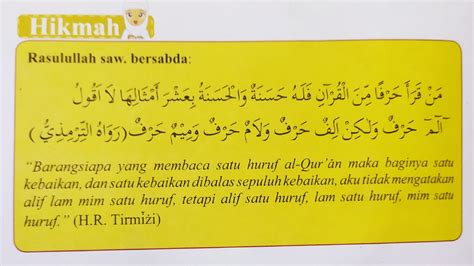 Hikmah
Rasulullah saw. bersabda:
مَنْ قَرَأَ حَرْفًا مِّنَ الْقُرْآنِ فَلَهُ حَسَنَةٌ وَالْحَسَنَةُ بِعَشْرِ أَمْثَالِهَا لَا أَقُولُ
آلٓمٓ حَرْفٌ وَلَكِنْ أَلِفٌ حَرْفٌ وَلَامٌ حَرْفٌ وَمِيْمٌ حَرْفٌ (رَوَاهُ التِّرْمِذِيُّ)
“Barangsiapa yang membaca satu huruf al-Qur’ân maka baginya satu
kebaikan, dan satu kebaikan dibalas sepuluh kebaikan, aku tidak mengatakan
alif lam mim satu huruf, tetapi alif satu huruf, lam satu huruf, mim satu
huruf.” (H.R. Tirmiżi)